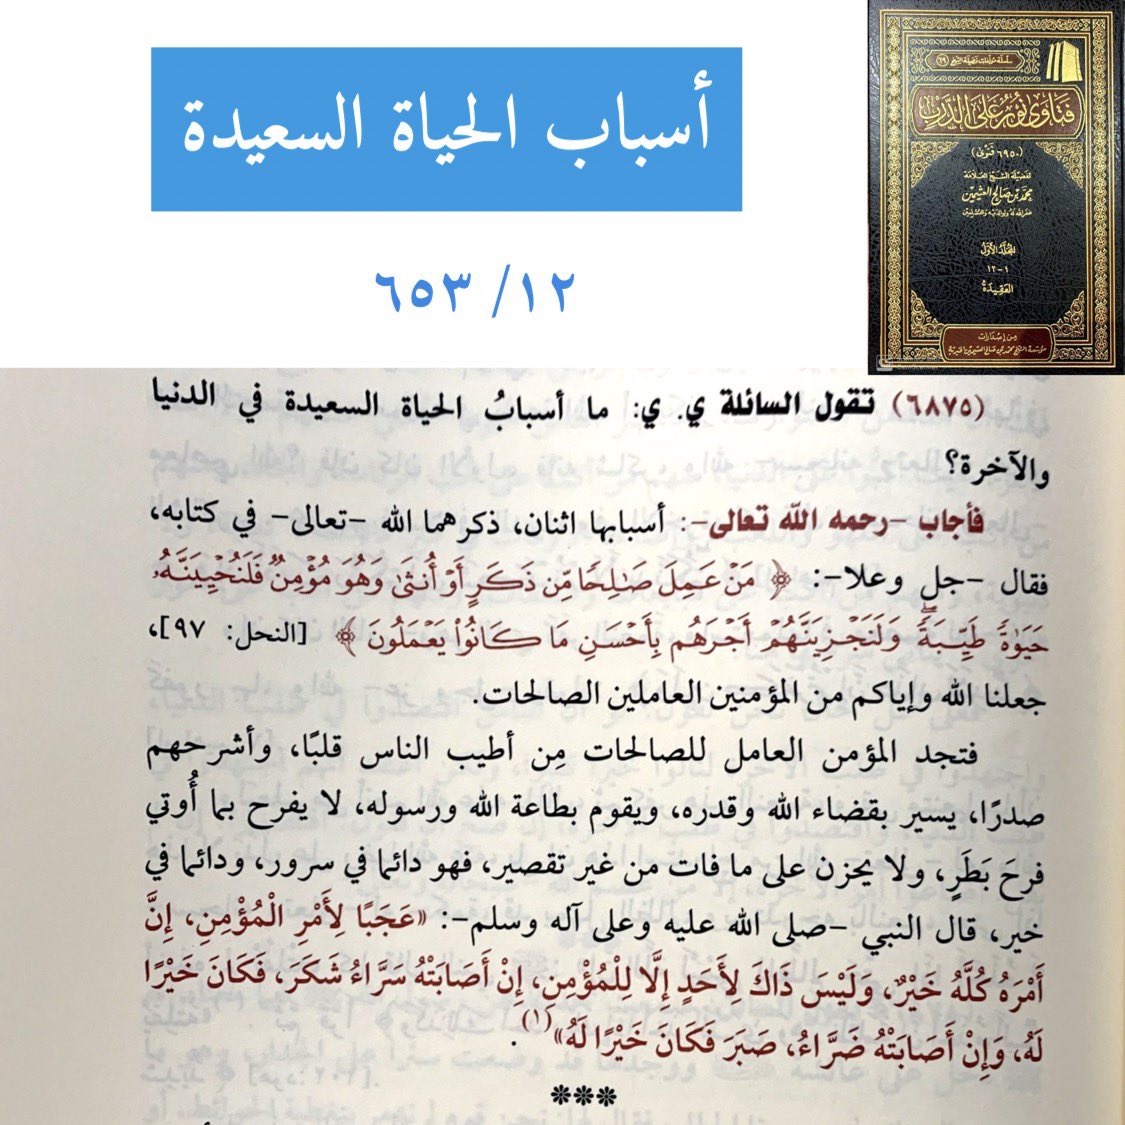 أسباب الحياة السعيدة
١٢/ ٦٥٣
سلسلة مؤلفات فضيلة الشيخ (٦٩)
فتاوى نور على الدرب
(٦٩٥٠ فتوى)
لفضيلة الشيخ العلامة
محمد بن صالح العثيمين
غفر الله له ولوالديه وللمسلمين
المجلد الأول
١-١٢
العقيدة
من إصدارات
مؤسسة الشيخ محمد بن صالح العثيمين الخيرية
(٦٨٧٥) تقول السائلة ي. ي: ما أسبابُ الحياة السعيدة في الدنيا
والآخرة؟
فأجاب -رحمه الله تعالى-: أسبابها اثنان، ذكرهما الله -تعالى- في كتابه،
فقال -جل وعلا-: ﴿ مَنْ عَمِلَ صَٰلِحًا مِّن ذَكَرٍ أَوْ أُنثَىٰ وَهُوَ مُؤْمِنٌ فَلَنُحْيِيَنَّهُۥ
حَيَوٰةً طَيِّبَةً ۖ وَلَنَجْزِيَنَّهُمْ أَجْرَهُم بِأَحْسَنِ مَا كَانُوا۟ يَعْمَلُونَ ﴾ [النحل: ٩٧]،
جعلنا الله وإياكم من المؤمنين العاملين الصالحات.
فتجد المؤمن العامل للصالحات مِن أطيب الناس قلبًا، وأشرحهم
صدرًا، يسير بقضاء الله وقدره، ويقوم بطاعة الله ورسوله، لا يفرح بما أُوتي
فرحَ بَطَرٍ، ولا يحزن على ما فات من غير تقصير، فهو دائما في سرور، ودائما في
خير، قال النبي -صلى الله عليه وعلى آله وسلم-: «عَجَبًا لِأَمْرِ الْمُؤْمِنِ، إِنَّ
أَمْرَهُ كُلَّهُ خَيْرٌ، وَلَيْسَ ذَاكَ لِأَحَدٍ إِلَّا لِلْمُؤْمِنِ، إِنْ أَصَابَتْهُ سَرَّاءُ شَكَرَ، فَكَانَ خَيْرًا
لَهُ، وَإِنْ أَصَابَتْهُ ضَرَّاءُ، صَبَرَ فَكَانَ خَيْرًا لَهُ»(١).
***